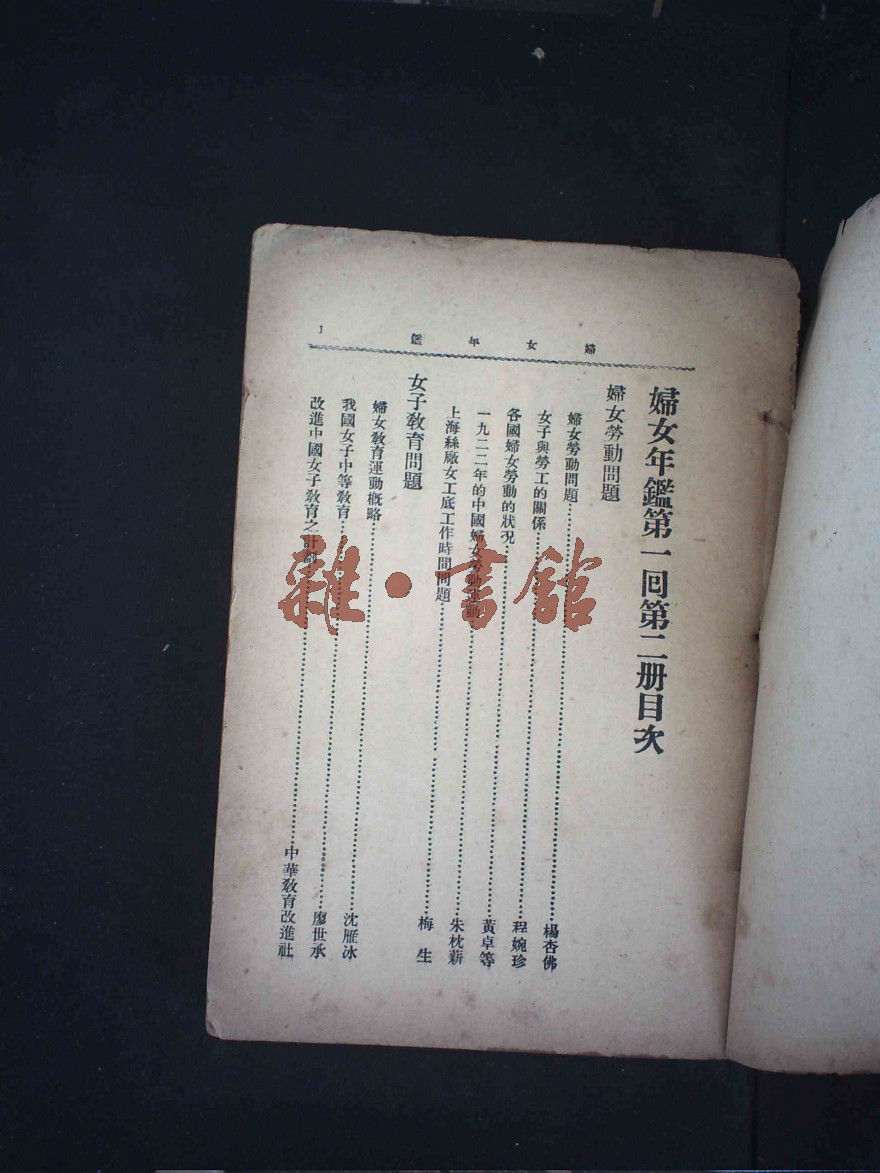 婦女年鑑
1
婦女年鑑第一回第二册目次
婦女勞動問題
婦女勞動問題……楊杏佛
女子與勞工的關係……程婉珍
各國婦女勞動的狀况……黃卓等
一九二二年的中國婦女勞動運動……朱枕薪
上海絲廠女工底工作時間問題……梅生
女子教育問題
婦女教育運動概略……沈雁冰
我國女子中等教育……廖世承
改進中國女子教育之計劃……中華教育改進社
雜·書館